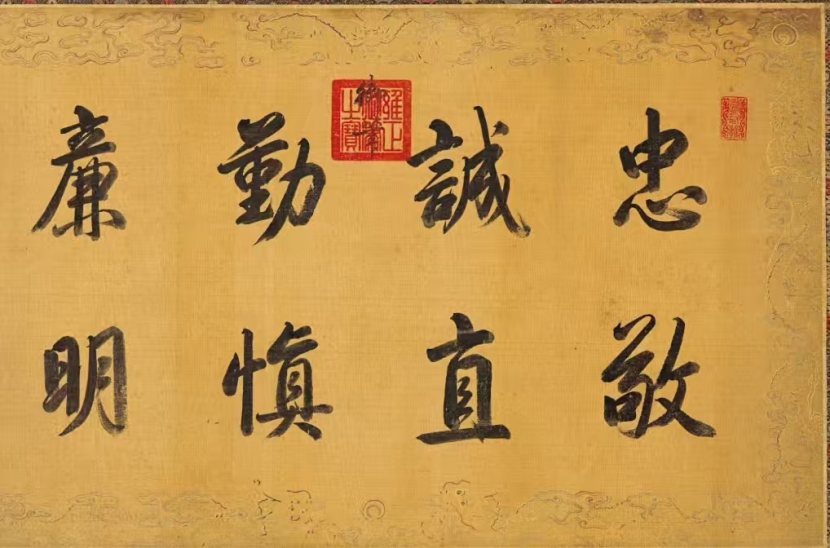 忠敬
誠直
勤慎
廉明
御筆
雍正之寶